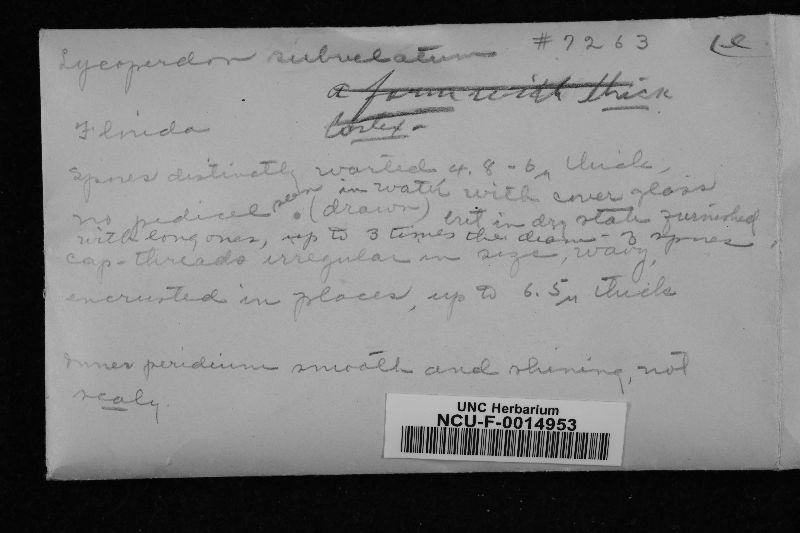 Lycoperdon subvelatum #7263
a form with thick
Florida cortex-
Spores distinctly warted 4.8-6µ thick,
no pedicel seen in water with cover glass
(drawn) but in dry state furnished
with long ones, up to 3 times the diam- of spores,
cap-threads irregular in size, wavy,
encrusted in places, up to 6.5µ thick
Inner peridium smooth and shining, not
scaly.
UNC Herbarium
NCU-F-0014953